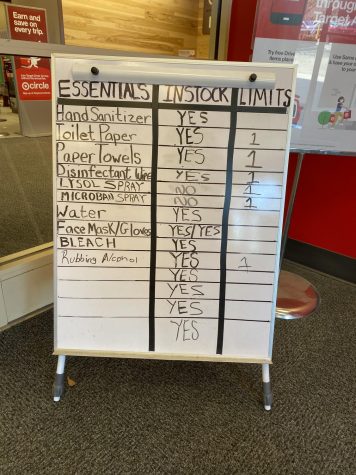 Earn and
save on
every trip.
circle
through
Target
Try free Drive
items placed
ESSENTIALS INSTOCK LIMITS
Hand Sanitizer YES
Toilet Paper YES 1
Paper Towels YES 1
Disinfectant Wipes YES 1
LYSOL SPRAY NO 1
MICROBAN SPRAY NO 1
Water YES
Face Mask/Gloves YES/YES
BLEACH YES
Rubbing Alcohol YES 1
YES
YES
YES